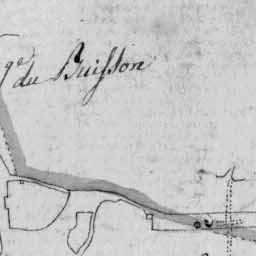 ge
du Buisson